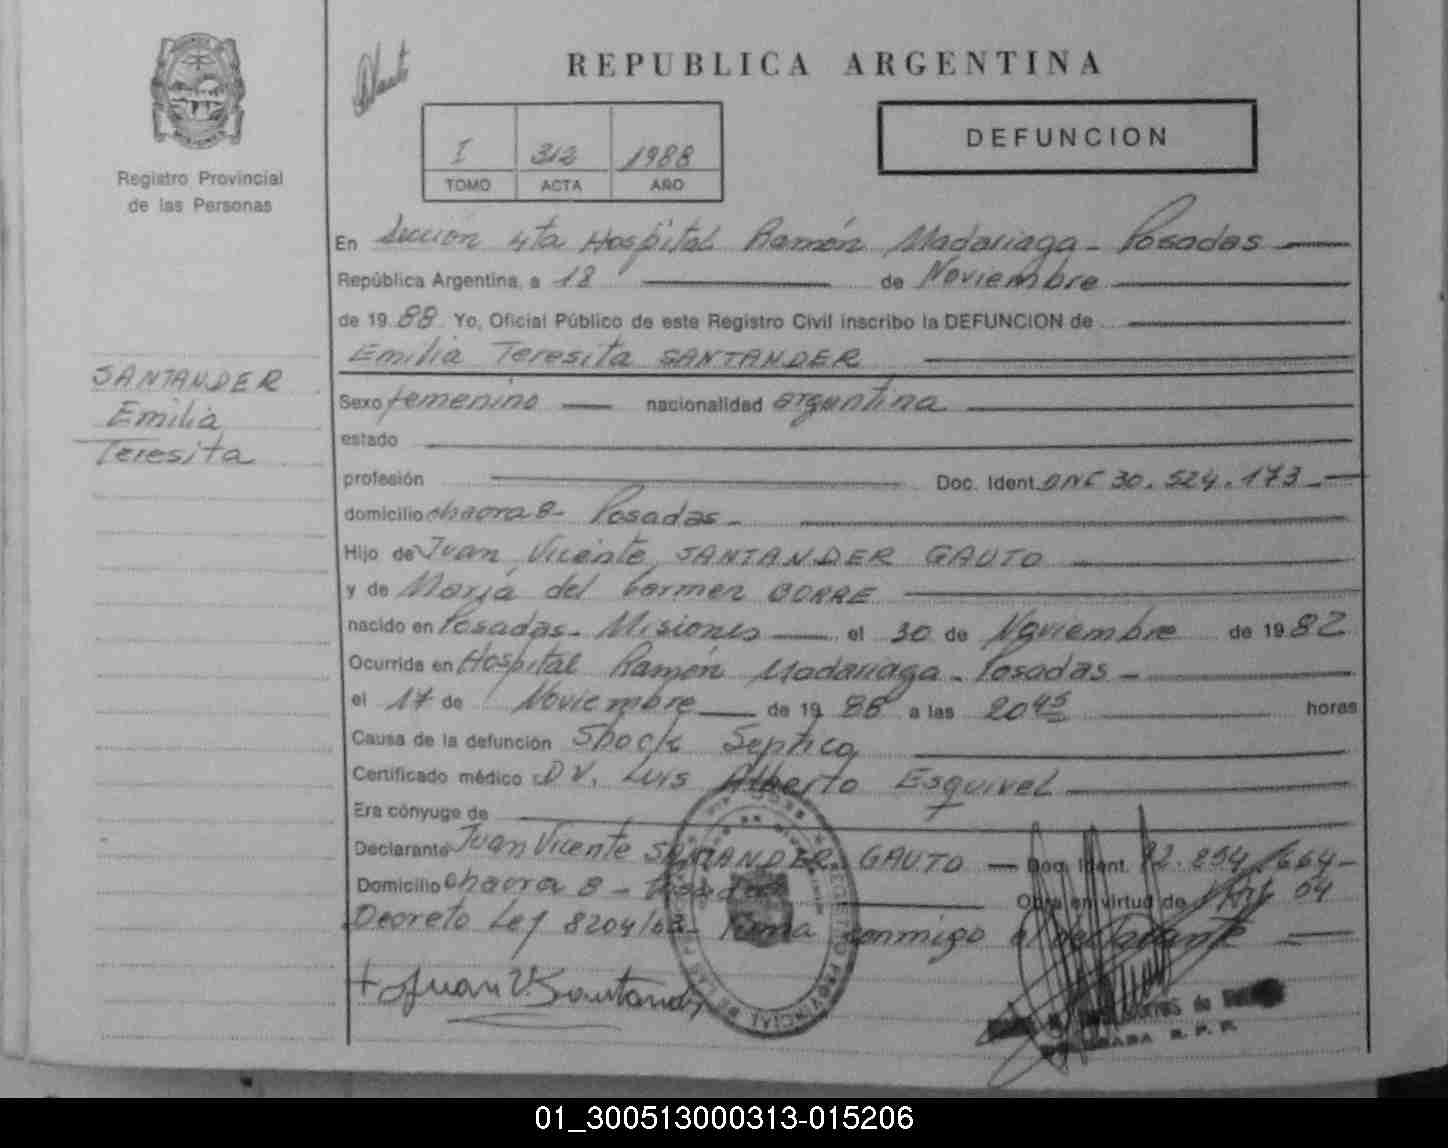 REPUBLICA ARGENTINA
I 312 1988
TOMO ACTA AÑO
DEFUNCION
Registro Provincial
de las Personas
SANTANDER
Emilia
Teresita
En Sección 4ta Hospital Ramón Madariaga - Posadas
República Argentina, a 18 de Noviembre
de 1988 Yo, Oficial Público de este Registro Civil inscribo la DEFUNCION de
Emilia Teresita SANTANDER
Sexo femenino nacionalidad argentina
estado
profesión Doc. Ident. 30.524.173
domicilio chacra 8 - Posadas -
Hijo de Juan Vicente SANTANDER GAUTO
y de María del Carmen
nacido en Posadas - Misiones el 30 de Noviembre de 1982
Ocurrida en Hospital Ramón Madariaga - Posadas -
el 17 de Noviembre de 1988 a las 20 45 horas
Causa de la defunción Shock Septico
Certificado médico Dr. Luis Alberto Esquivel
Era cónyuge de
Declarante Juan Vicente SANTANDER GAUTO - Doc. Ident.
Domicilio chacra 8 - Posadas Obra en virtud de
Decreto Ley 8204/63 - Firma conmigo el declarante
Juan V. Santander
REGISTRO PROVINCIAL DE LAS
01_300513000313-015206